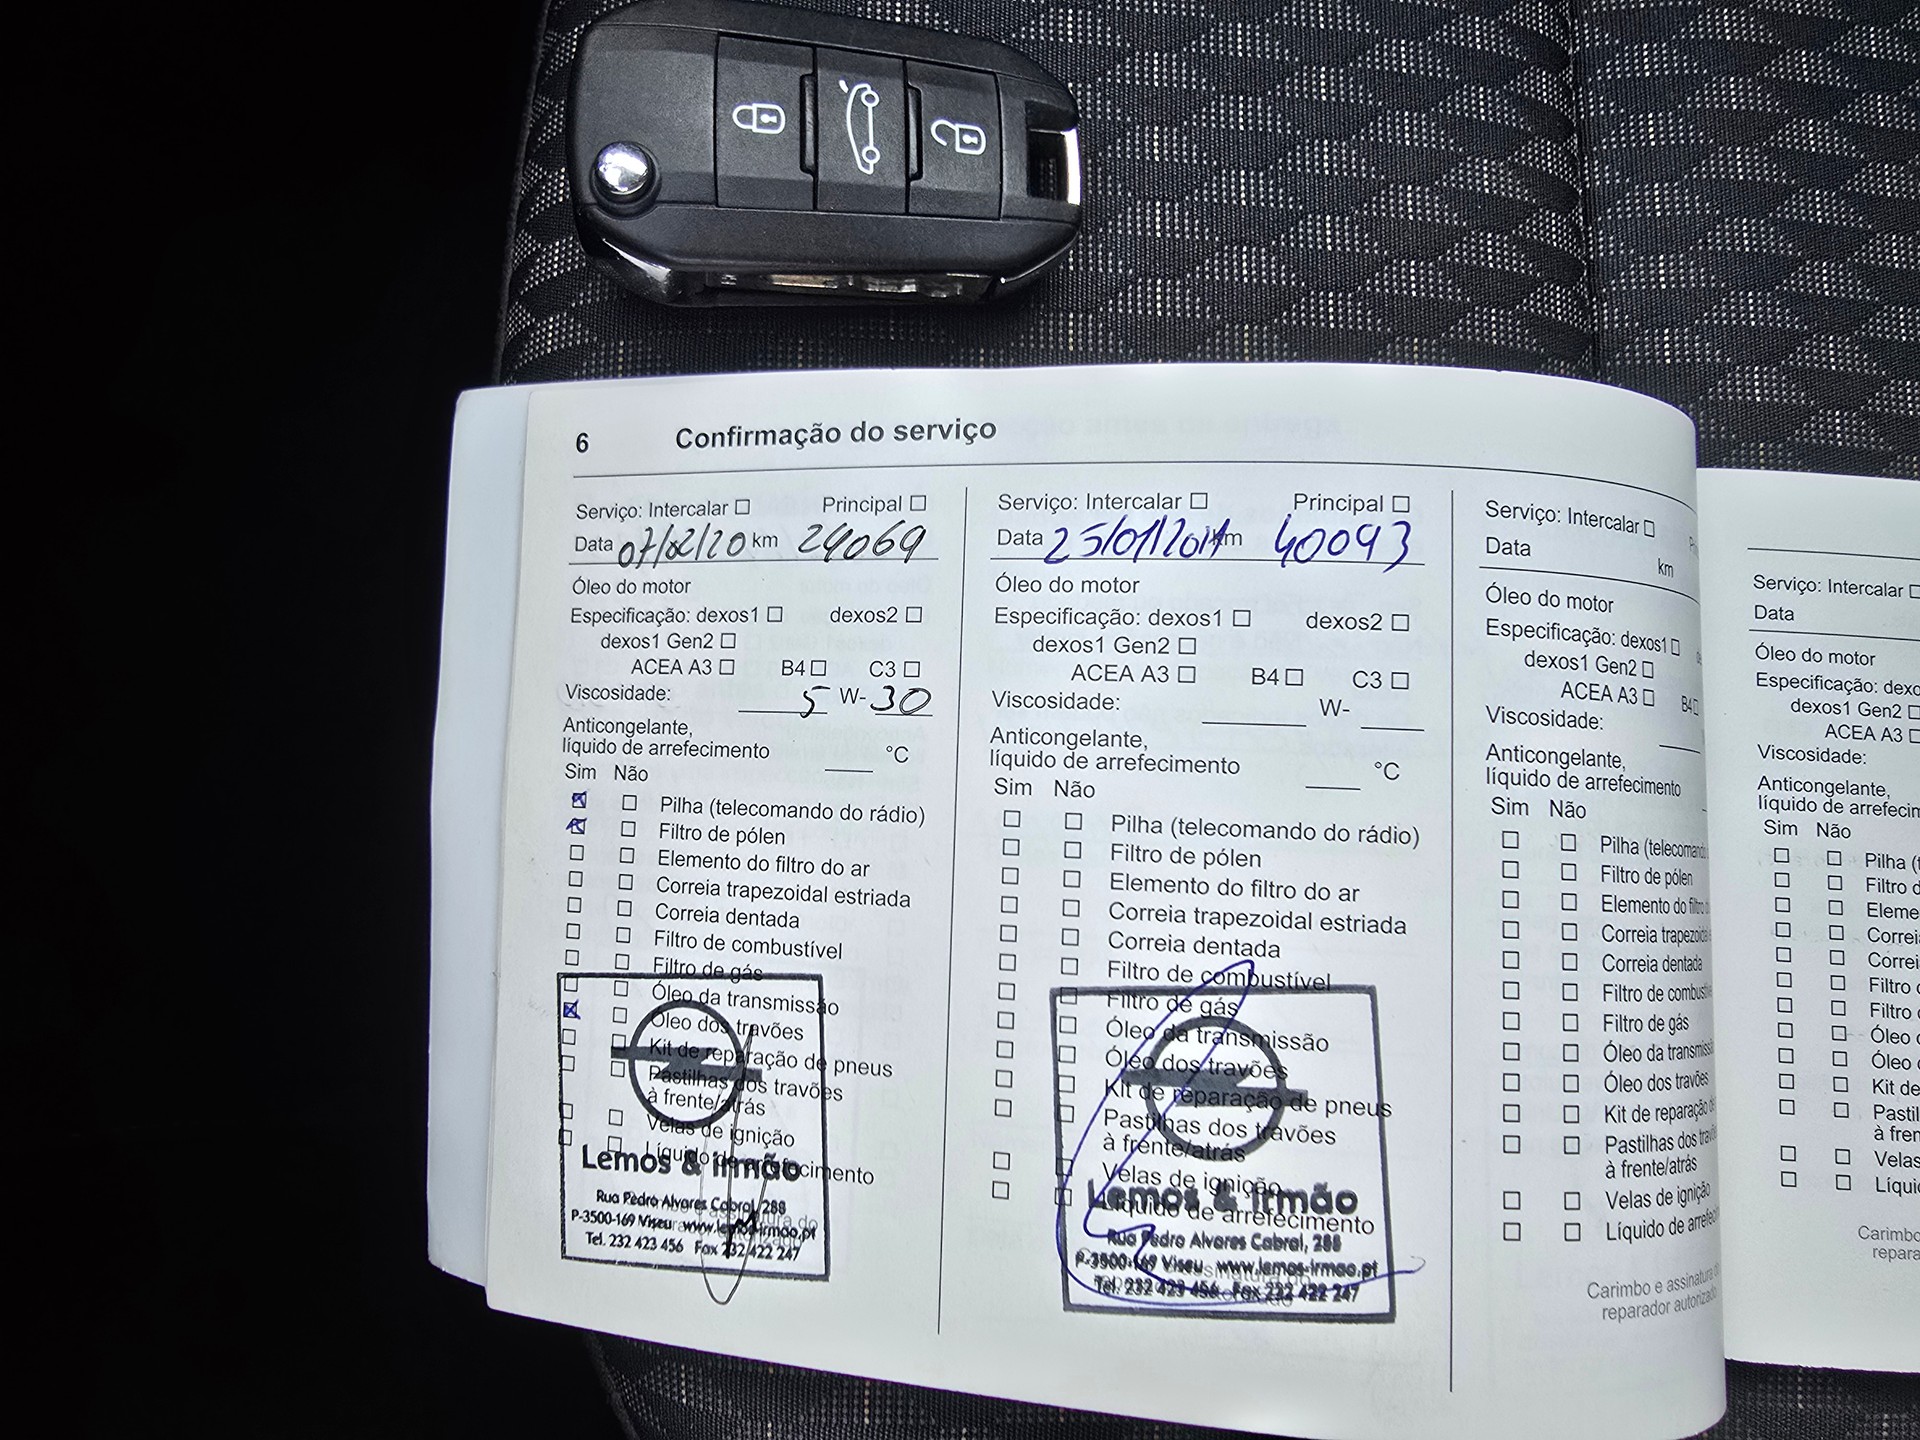 6 Confirmação do serviço
Serviço: Intercalar Principal
Data 07/02/20 km 24069
Óleo do motor
Especificação: dexos1 dexos2
dexos1 Gen2
ACEA A3 B4 C3
Viscosidade: 5 W-30
Anticongelante,
líquido de arrefecimento °C
Sim Não
Pilha (telecomando do rádio)
Filtro de pólen
Elemento do filtro do ar
Correia trapezoidal estriada
Correia dentada
Filtro de combustível
Filtro de gás
Óleo da transmissão
Óleo dos travões
Kit de reparação de pneus
Pastilhas dos travões
à frente/atrás
Velas de ignição
Líquido de arrefecimento
Lemos & Irmão
Rua Pedro Alvares Cabral, 288
P-3500-169 Viseu www.lemos-irmao.pt
Tel. 232 423 456 Fax 232 422 247
Serviço: Intercalar Principal
Data 25/01/ km 40093
Óleo do motor
Especificação: dexos1 dexos2
dexos1 Gen2
ACEA A3 B4 C3
Viscosidade: W-
Anticongelante,
líquido de arrefecimento °C
Sim Não
Pilha (telecomando do rádio)
Filtro de pólen
Elemento do filtro do ar
Correia trapezoidal estriada
Correia dentada
Filtro de combustível
Filtro de gás
Óleo da transmissão
Óleo dos travões
Kit de reparação de pneus
Pastilhas dos travões
à frente/atrás
Velas de ignição
Líquido de arrefecimento
Lemos & Irmão
Rua Pedro Alvares Cabral, 288
P-3500-169 Viseu www.lemos-irmao.pt
Tel. 232 423 456 Fax 232 422 247
Serviço: Intercalar
Data km
Óleo do motor
Especificação: dexos1
dexos1 Gen2
ACEA A3 B4
Viscosidade:
Anticongelante,
líquido de arrefecimento
Sim Não
Pilha (telecomand
Filtro de pólen
Elemento do filtro
Correia trapezoida
Correia dentada
Filtro de combustí
Filtro de gás
Óleo da transmiss
Óleo dos travões
Kit de reparação
Pastilhas dos trav
à frente/atrás
Velas de ignição
Líquido de arrefe
Carimbo e assinatura
reparador autorizado
Serviço: Intercalar
Data
Óleo do motor
Especificação: dexo
dexos1 Gen2
ACEA A3
Viscosidade:
Anticongelante,
líquido de arrefecim
Sim Não
Pilha (t
Filtro d
Eleme
Correi
Correi
Filtro
Filtro
Óleo
Óleo
Kit de
Pastil
à fren
Velas
Líqui
Carimbo
repara